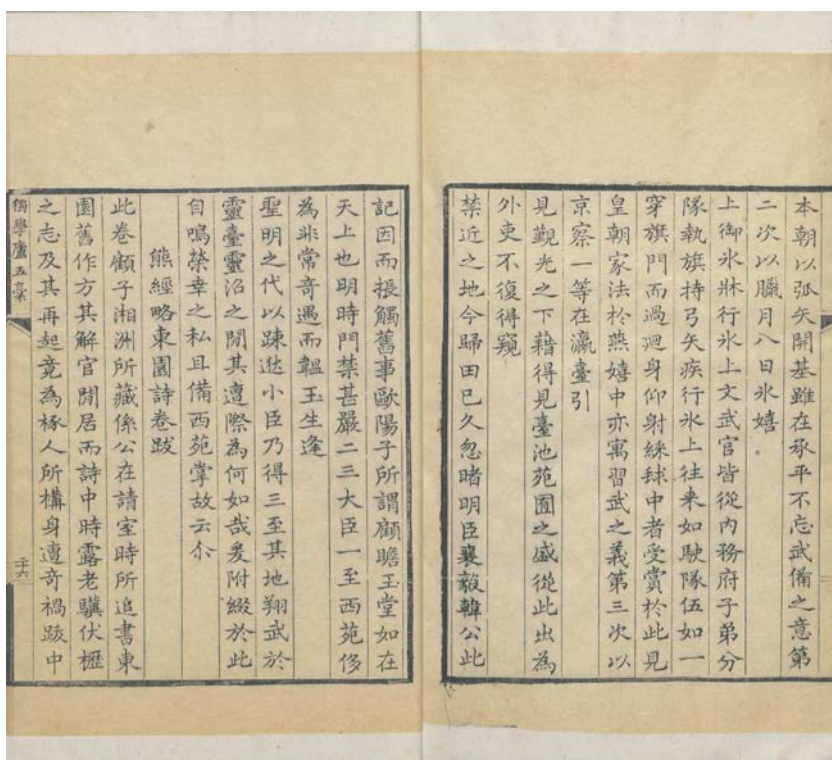 本朝以弧矢開基雖在承平不忘武備之意第
二次以臘月八日氷嬉
上御氷牀行氷上文武官皆從內務府子弟分
隊執旗持弓矢疾行氷上往来如駛隊伍如一
穿旗門而過迴身仰射綵球中者受賞於此見
皇朝家法於燕嬉中亦寓習武之義第三次以
京察一等在瀛臺引
見觀光之下藉得見臺池苑囿之盛從此出為
外吏不復得窺
禁近之地今歸田已久忽睹明臣襄毅韓公此
記因而振觸舊事歐陽子所謂顧瞻玉堂如在
天上也明時門禁甚嚴二三大臣一至西苑侈
為非常奇遇而韞玉生逢
聖明之代以踈逖小臣乃得三至其地翔武於
靈臺靈沼之閒其遭際為何如哉爰附綴於此
自鳴榮幸之私且備西苑掌故云尒
熊經略東園詩卷跋
此卷顧子湘洲所藏係公在請室時所追書東
園舊作方其解官閒居而詩中時露老驥伏櫪
之志及其再起竟為椓人所構身遭奇禍跋中
獨學廬五稾
二十六